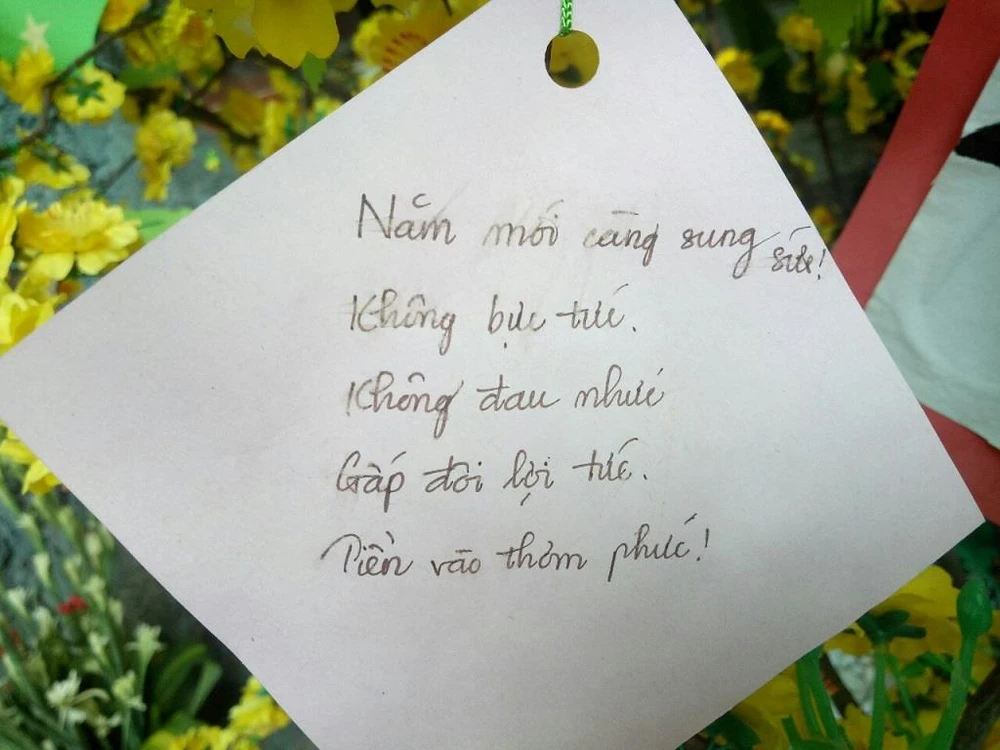 Năm mới càng sung sức!
Không bực tức.
Không đau nhức
Gấp đôi lợi tức.
Tiền vào thơm phức!